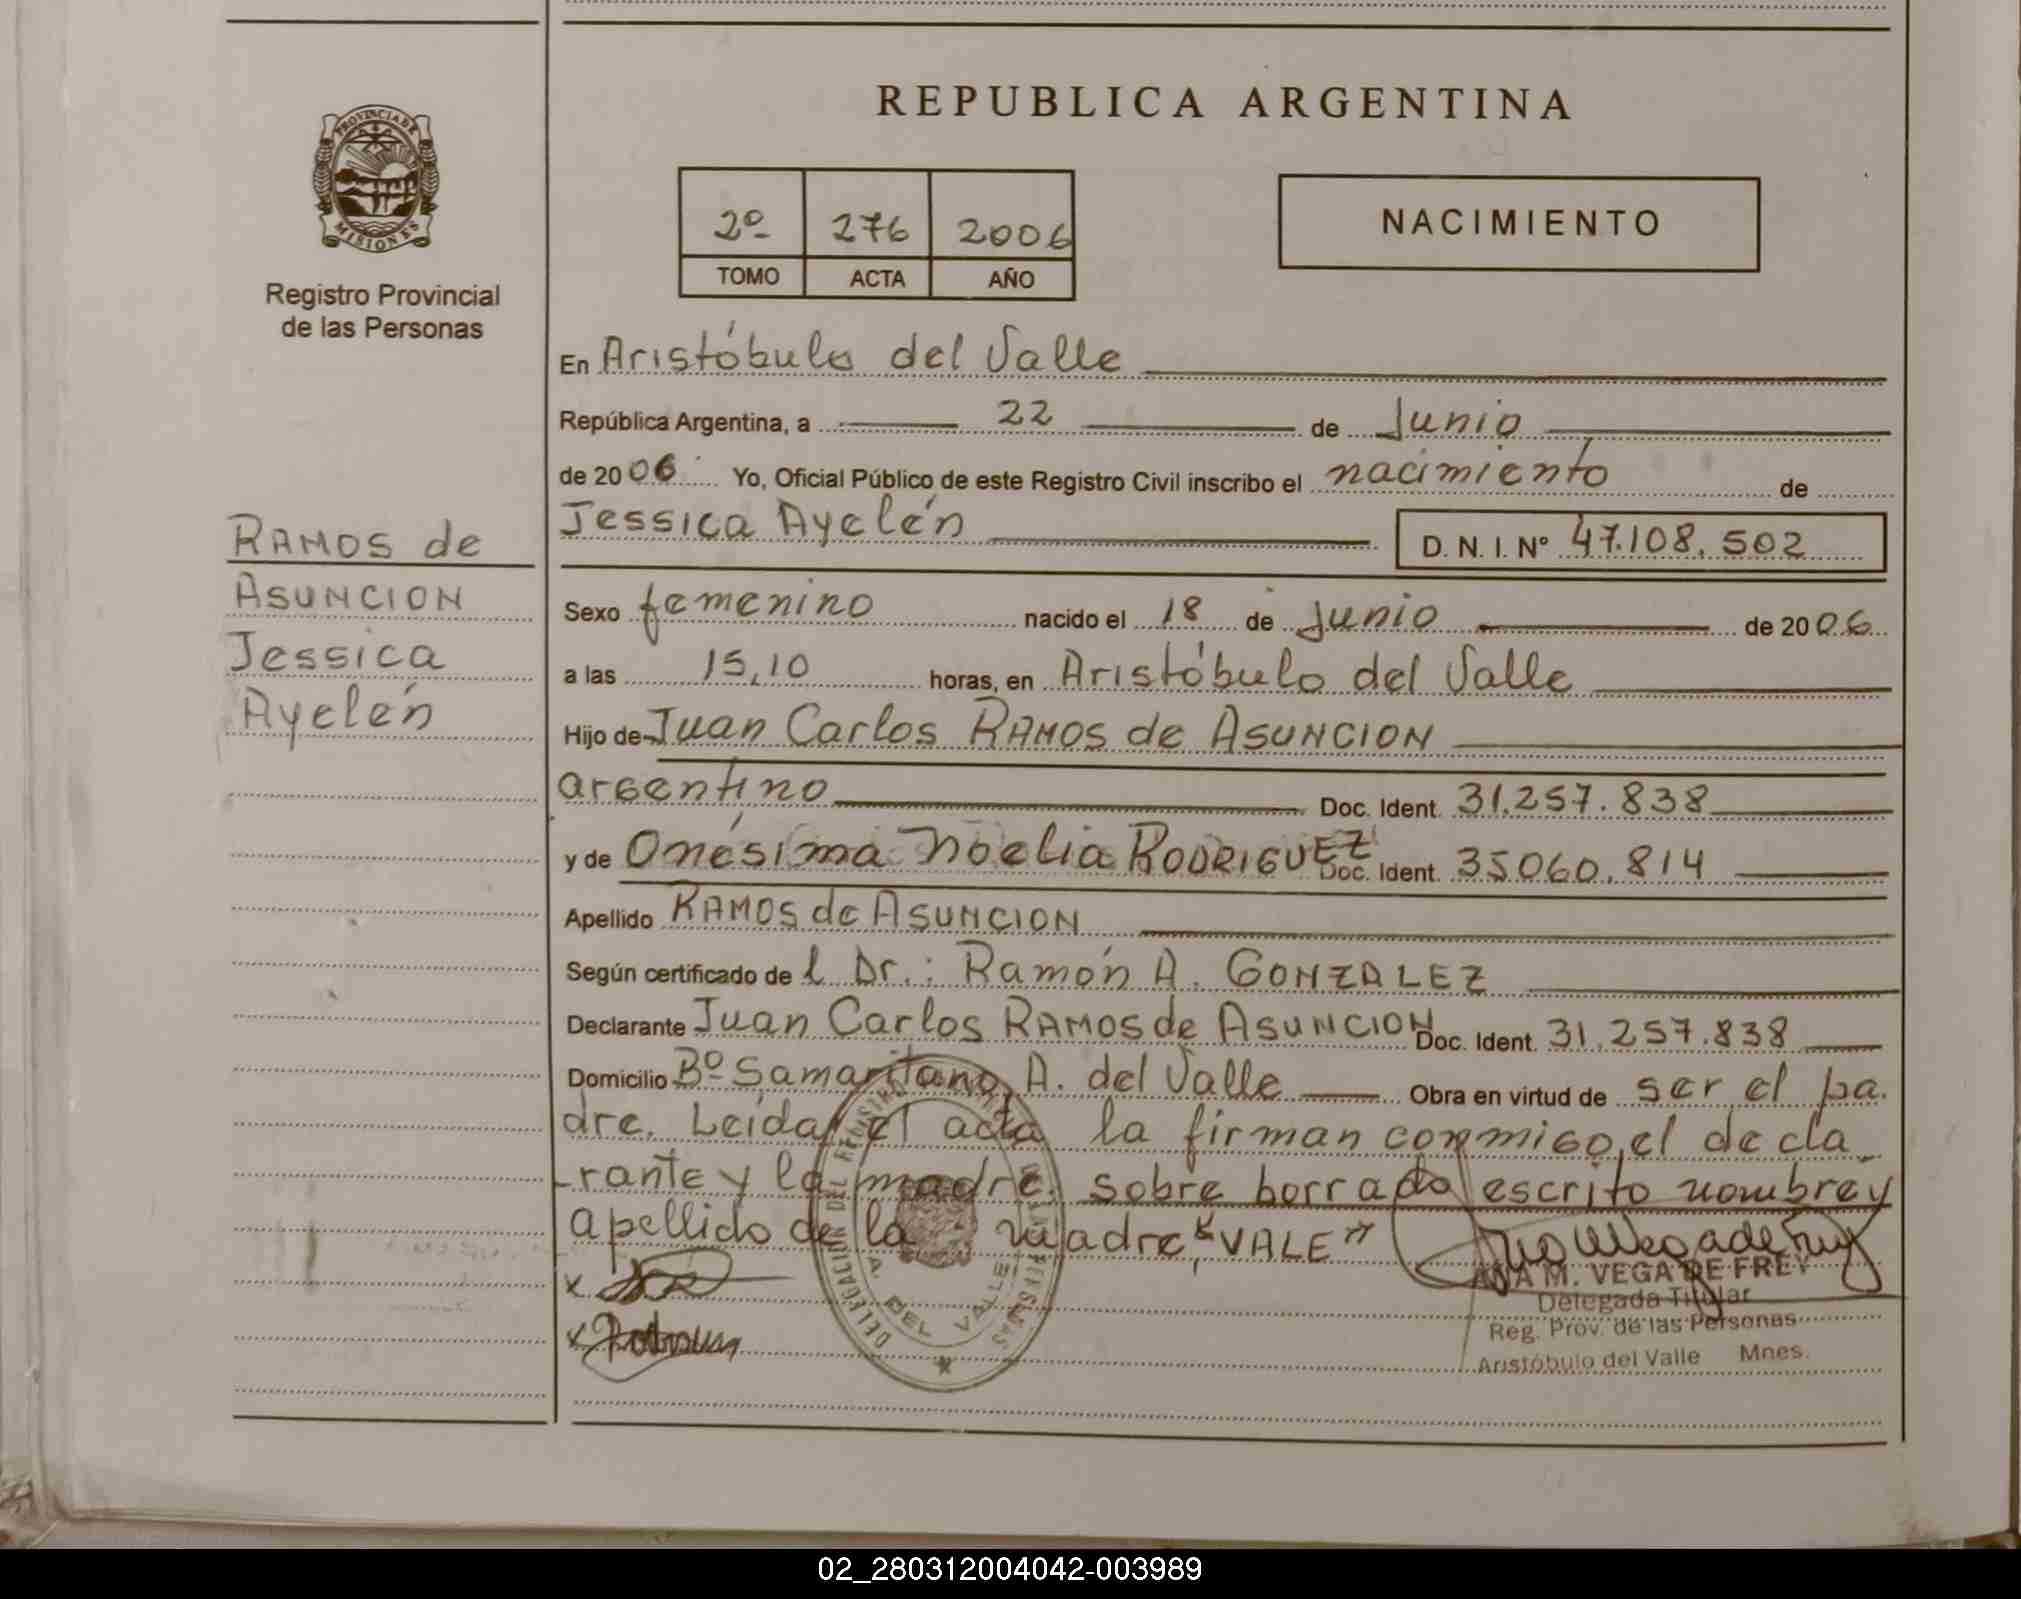 REPUBLICA ARGENTINA
PROVINCIA DE
MISIONES
Registro Provincial
de las Personas
2º 276 2006
TOMO ACTA AÑO
NACIMIENTO
RAMOS de
ASUNCION
Jessica
Ayelén
En Aristóbulo del Valle
República Argentina, a 22 de Junio
de 2006 Yo, Oficial Público de este Registro Civil inscribo el nacimiento de
Jessica Ayelén D. N. I. Nº 47.108.502
Sexo femenino nacido el 18 de junio de 2006
a las 15,10 horas, en Aristóbulo del Valle
Hijo de Juan Carlos RAMOS de ASUNCION
argentino Doc. Ident. 31.257.838
y de Onésima Noelia RODRIGUEZ Doc. Ident. 35060.814
Apellido RAMOS de ASUNCION
Según certificado de l Dr.: Ramón A. GONZALEZ
Declarante Juan Carlos RAMOS de ASUNCION Doc. Ident. 31.257.838
Domicilio Bº Samaritano A. del Valle Obra en virtud de ser el pa.
dre. Leída el acta la firman conmigo, el decla
-rante y la madre. sobre borrado escrito nombre y
apellido de la madre "VALE"
ANA M. VEGA DE FREY
Delegada Titular
Reg. Prov. de las Personas
Aristóbulo del Valle Mnes.
A. DEL VALLE
02_280312004042-003989